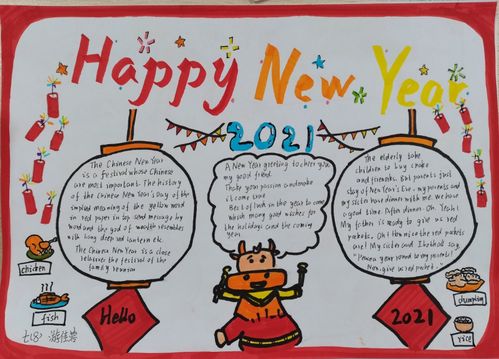 Happy New Year
2021
The Chinese New Year
is a festival whose Chinese
are most important. The history
of the Chinese New Year's Day of the
simplest meaning of the yellow word
in red paper in top send message by
word and the god of wealth resembles
with long deep red lantern etc.
The Chinese New Year is a close
relatives the festival of the
family reunion
A New Year greeting to cheer you
my good friend.
Take your passion and make
it come true
Best of luck in the year to come
which many good wishes for
the holidays and the coming
year.
The elderly take
children to buy
and firements. But parents first
day of New Year's Eve. my parents and
my sister have dinner with me. We have
a good time. After dinner. Oh. Yeah!
My father is ready to give us red
packets. Oh! How nice the red packets
are! My sister and I
year round to my parents!
Now give us red packet.
chicken
fish
七(8)
Hello
2021
dumpling
rice